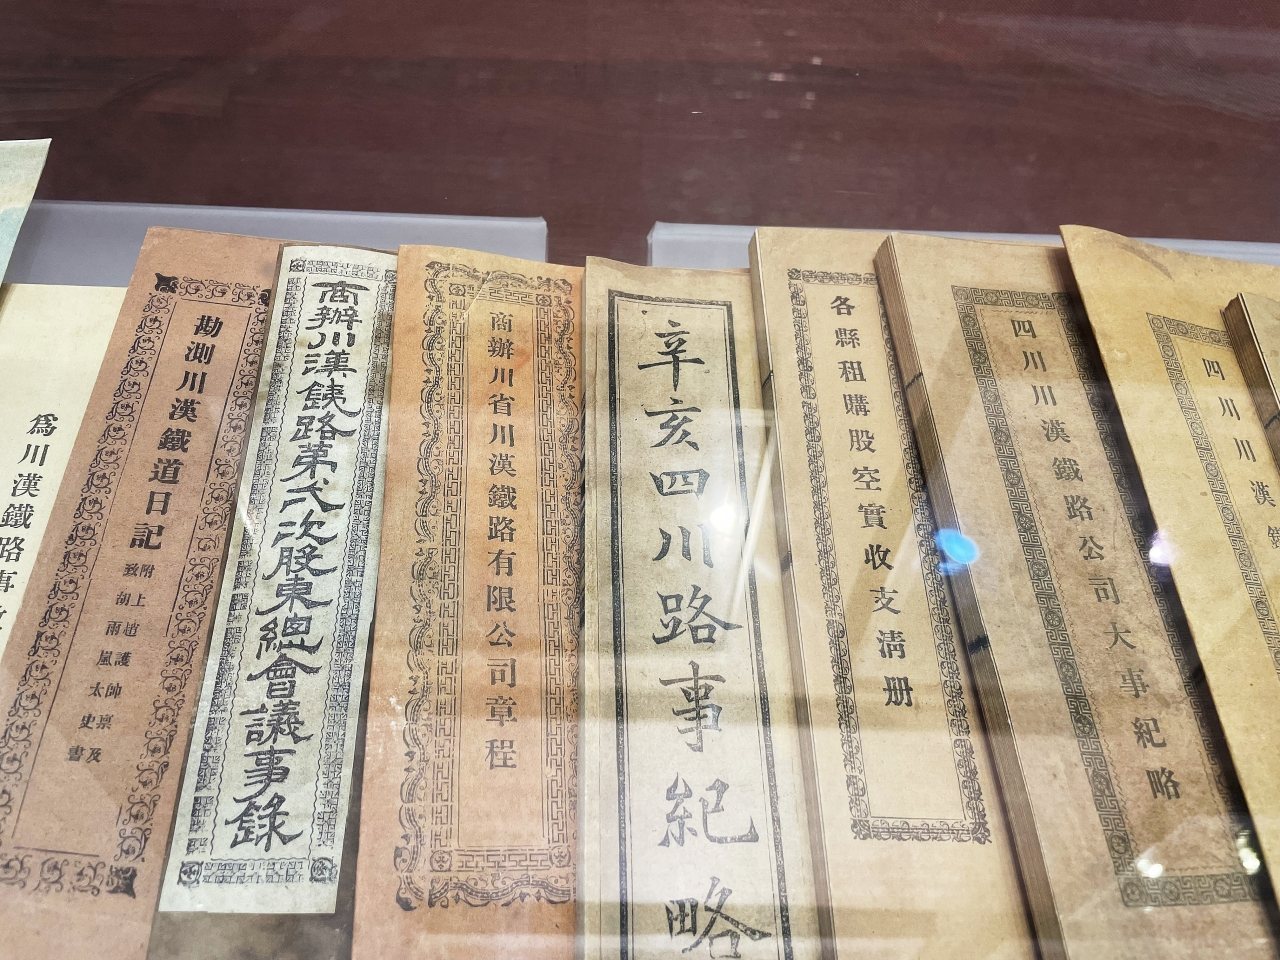 為川漢鐵路事
勘測川漢鐵道日記
附上趙護帥稟及
致胡雨嵐太史書
商辦川漢鐵路第弍次股東總會議事錄
商辦川省川漢鐵路有限公司章程
辛亥四川路事紀略
各縣租購股空實收支清册
四川川漢鐵路公司大事紀略
四川川漢